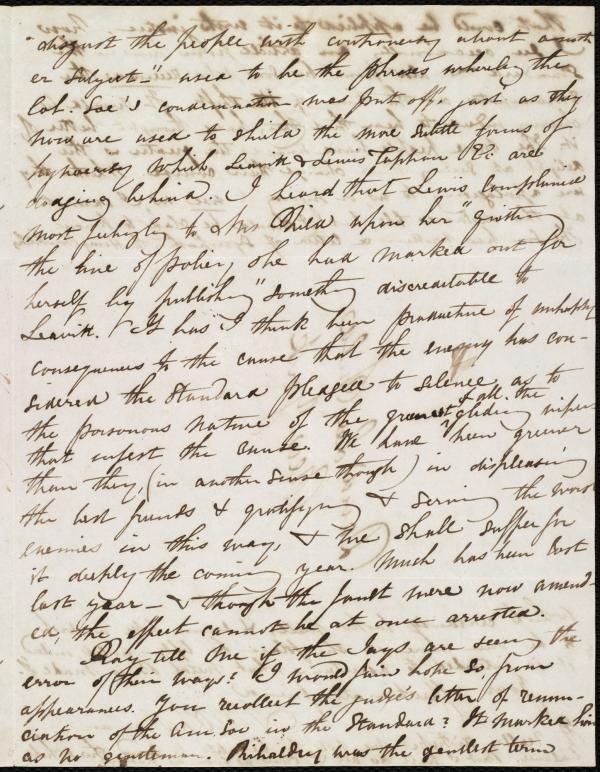 "disgust the people with controversy about anoth
er subject—" used to be the phrases whereby the
Col. Soc's condemnation was put off, just as they
now are used to shield the more subtle forms of
hypocrisy which Leavitt & Lewis Tappan &c. are
dodging behind. I heard that Lewis complained
most feelingly to Mrs Child upon her "quitting
the line of policy she had marked out for
herself by publishing" something discreditable to
Leavitt. It has I think been productive of unhappy
consequences to the cause that the enemy has con-
sidered the Standard pledged to silence as to
the poisonous nature of the greenest & all the gliding vipers
that infest the cause. We have been greener
than they, (in another sense though) in displeasing
the best friends & gratifying & serving the worst
enemies in this way, & we shall suffer for
it deeply the coming year. Much has been lost
last year — & though the fault were now amend-
ed, the effect cannot be at once arrested.
Pray tell me if the Jays are seeing the
error of their ways? I would fain hope so, from
appearances. You recollect the judge's letter of renun-
ciation of the Am. Soc in the Standard? It marked him
as no gentleman. Ribaldry was the gentlest term